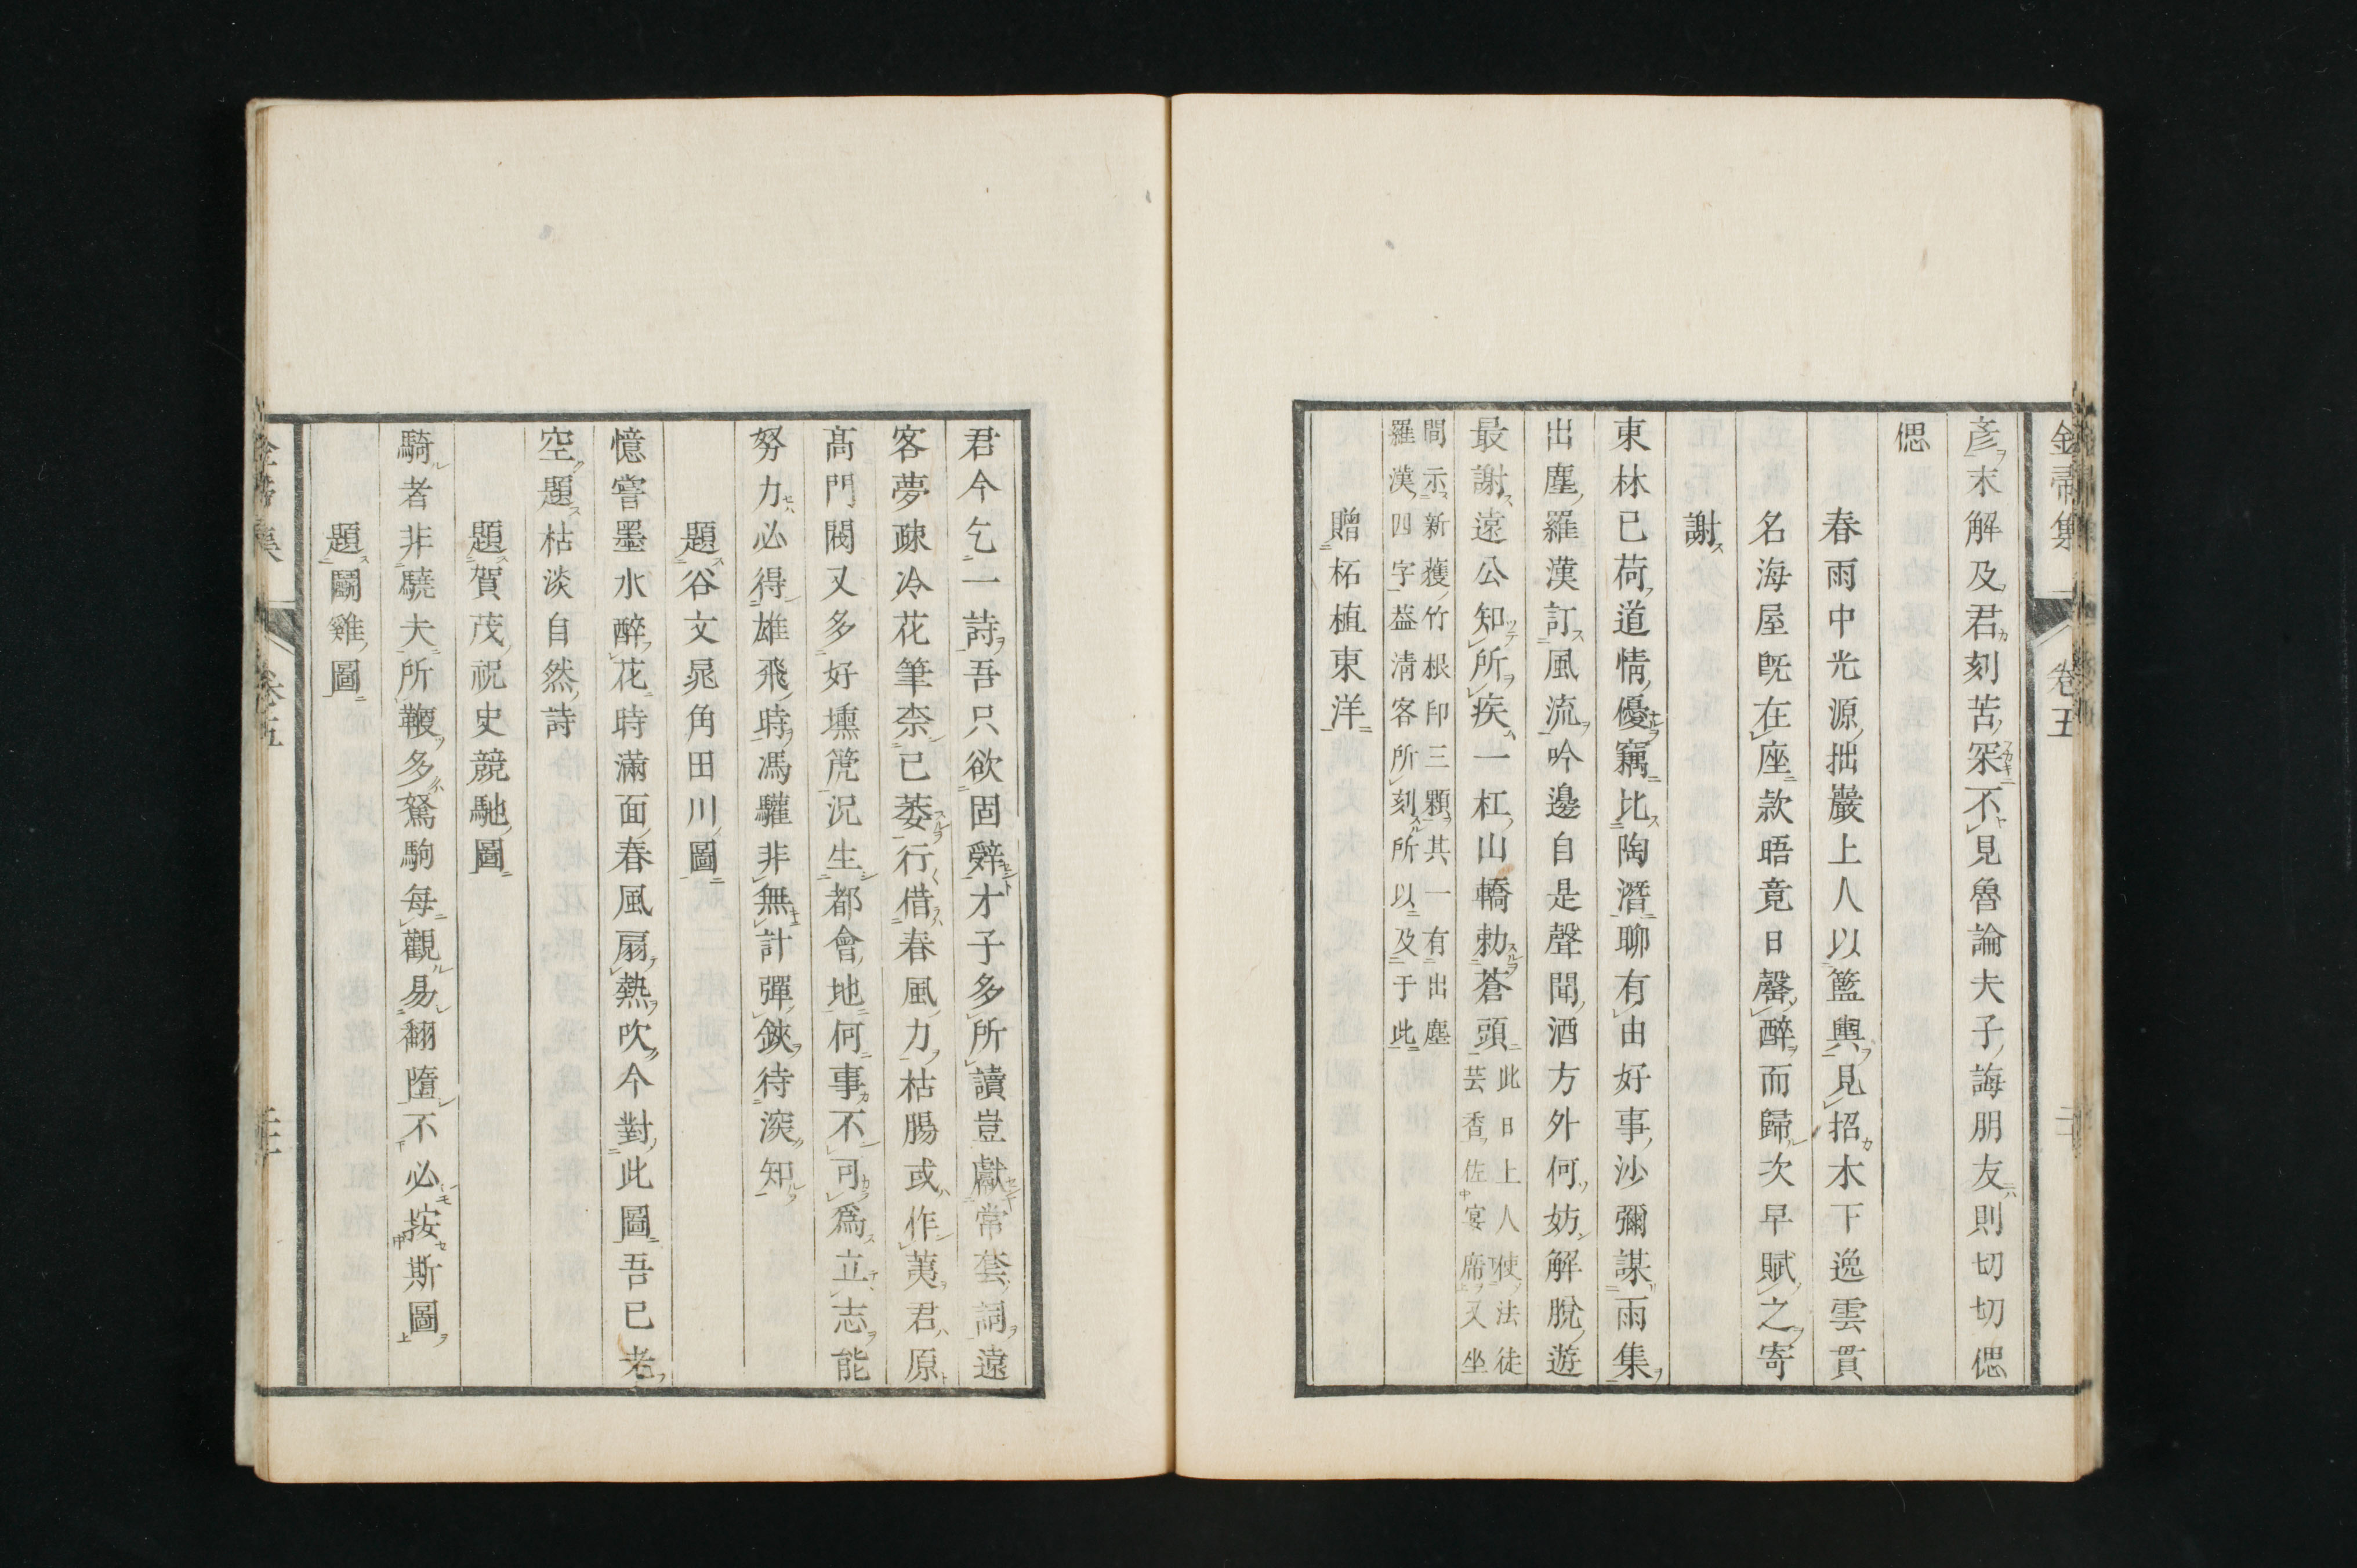 彦末解及君刻苦罙不見魯論夫子誨朋友則切切偲
偲
春雨中光源拙巖上人以籃輿見招木下逸雲貫
名海屋既在座款晤竟日罄醉而歸次早賦之寄
謝
東林已荷道情優竊比陶潛聊有由好事沙彌謀雨集
出塵羅漢訂風流吟邊自是聲聞酒方外何妨解脫遊
最謝遠公知所疾一杠山轎勅蒼頭
此日上人使法徒
芸香佐宴席又坐
間示新獲竹根印三顆其一有出塵
羅漢四字葢淸客所刻所以及于此
贈柘植東洋
君今乞一詩吾只欲固辭才子多所讀豈獻常套詞遠
客夢疎冷花筆柰已萎行借春風力枯腸或作荑君原
髙門閥又多好壎箎況生都會地何事不可爲立志能
努力必得雄飛時馮驩非無計彈鋏待深知
題谷文晁角田川圖
憶嘗墨水醉花時滿面春風扇熱吹今對此圖吾已老
空題枯淡自然詩
題賀茂祝史競馳圖
騎者非驍夫所鞭多駑駒每觀易翻墮不必按斯圖
題鬭雞圖
卷五